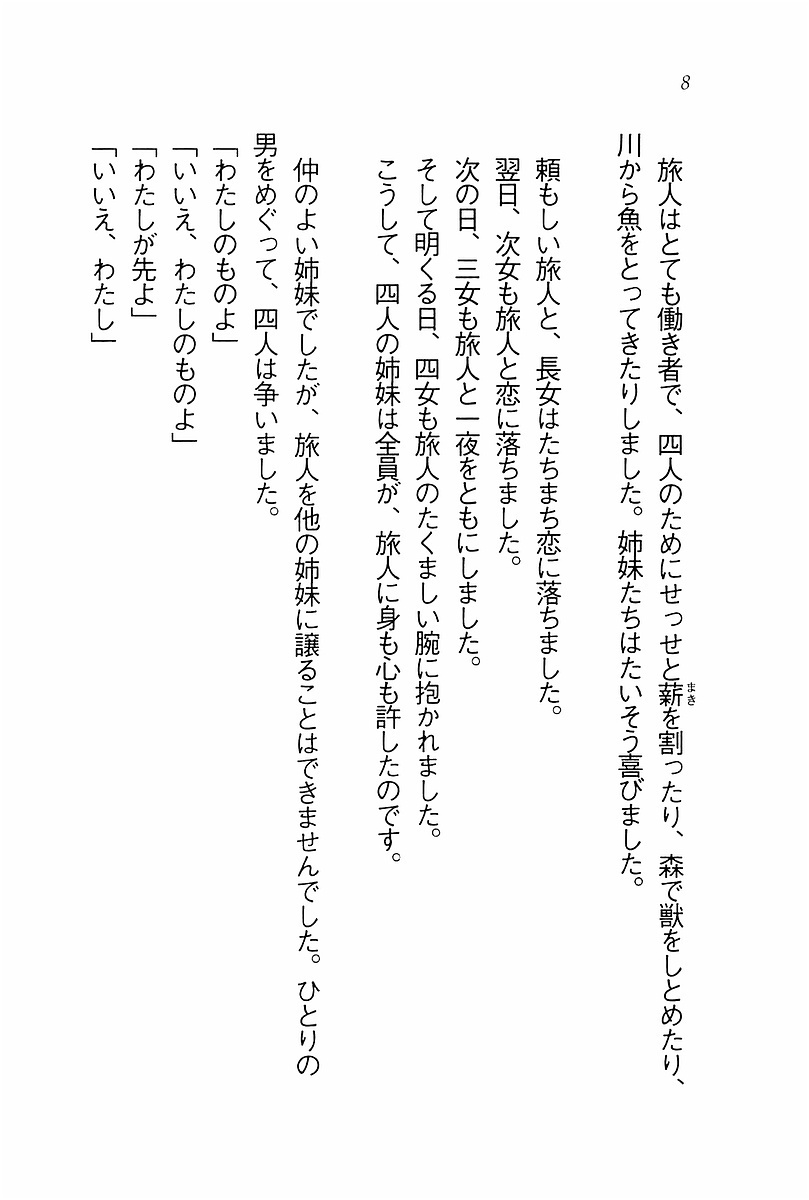 8
旅人はとても働き者で、四人のためにせっせと薪を割ったり、森で獣をしとめたり、
まき
川から魚をとってきたりしました。姉妹たちはたいそう喜びました。
頼もしい旅人と、長女はたちまち恋に落ちました。
翌日、次女も旅人と恋に落ちました。
次の日、三女も旅人と一夜をともにしました。
そして明くる日、四女も旅人のたくましい腕に抱かれました。
こうして、四人の姉妹は全員が、旅人に身も心も許したのです。
仲のよい姉妹でしたが、旅人を他の姉妹に譲ることはできませんでした。ひとりの
男をめぐって、四人は争いました。
「わたしのものよ」
「いいえ、わたしのものよ」
「わたしが先よ」
「いいえ、わたし」